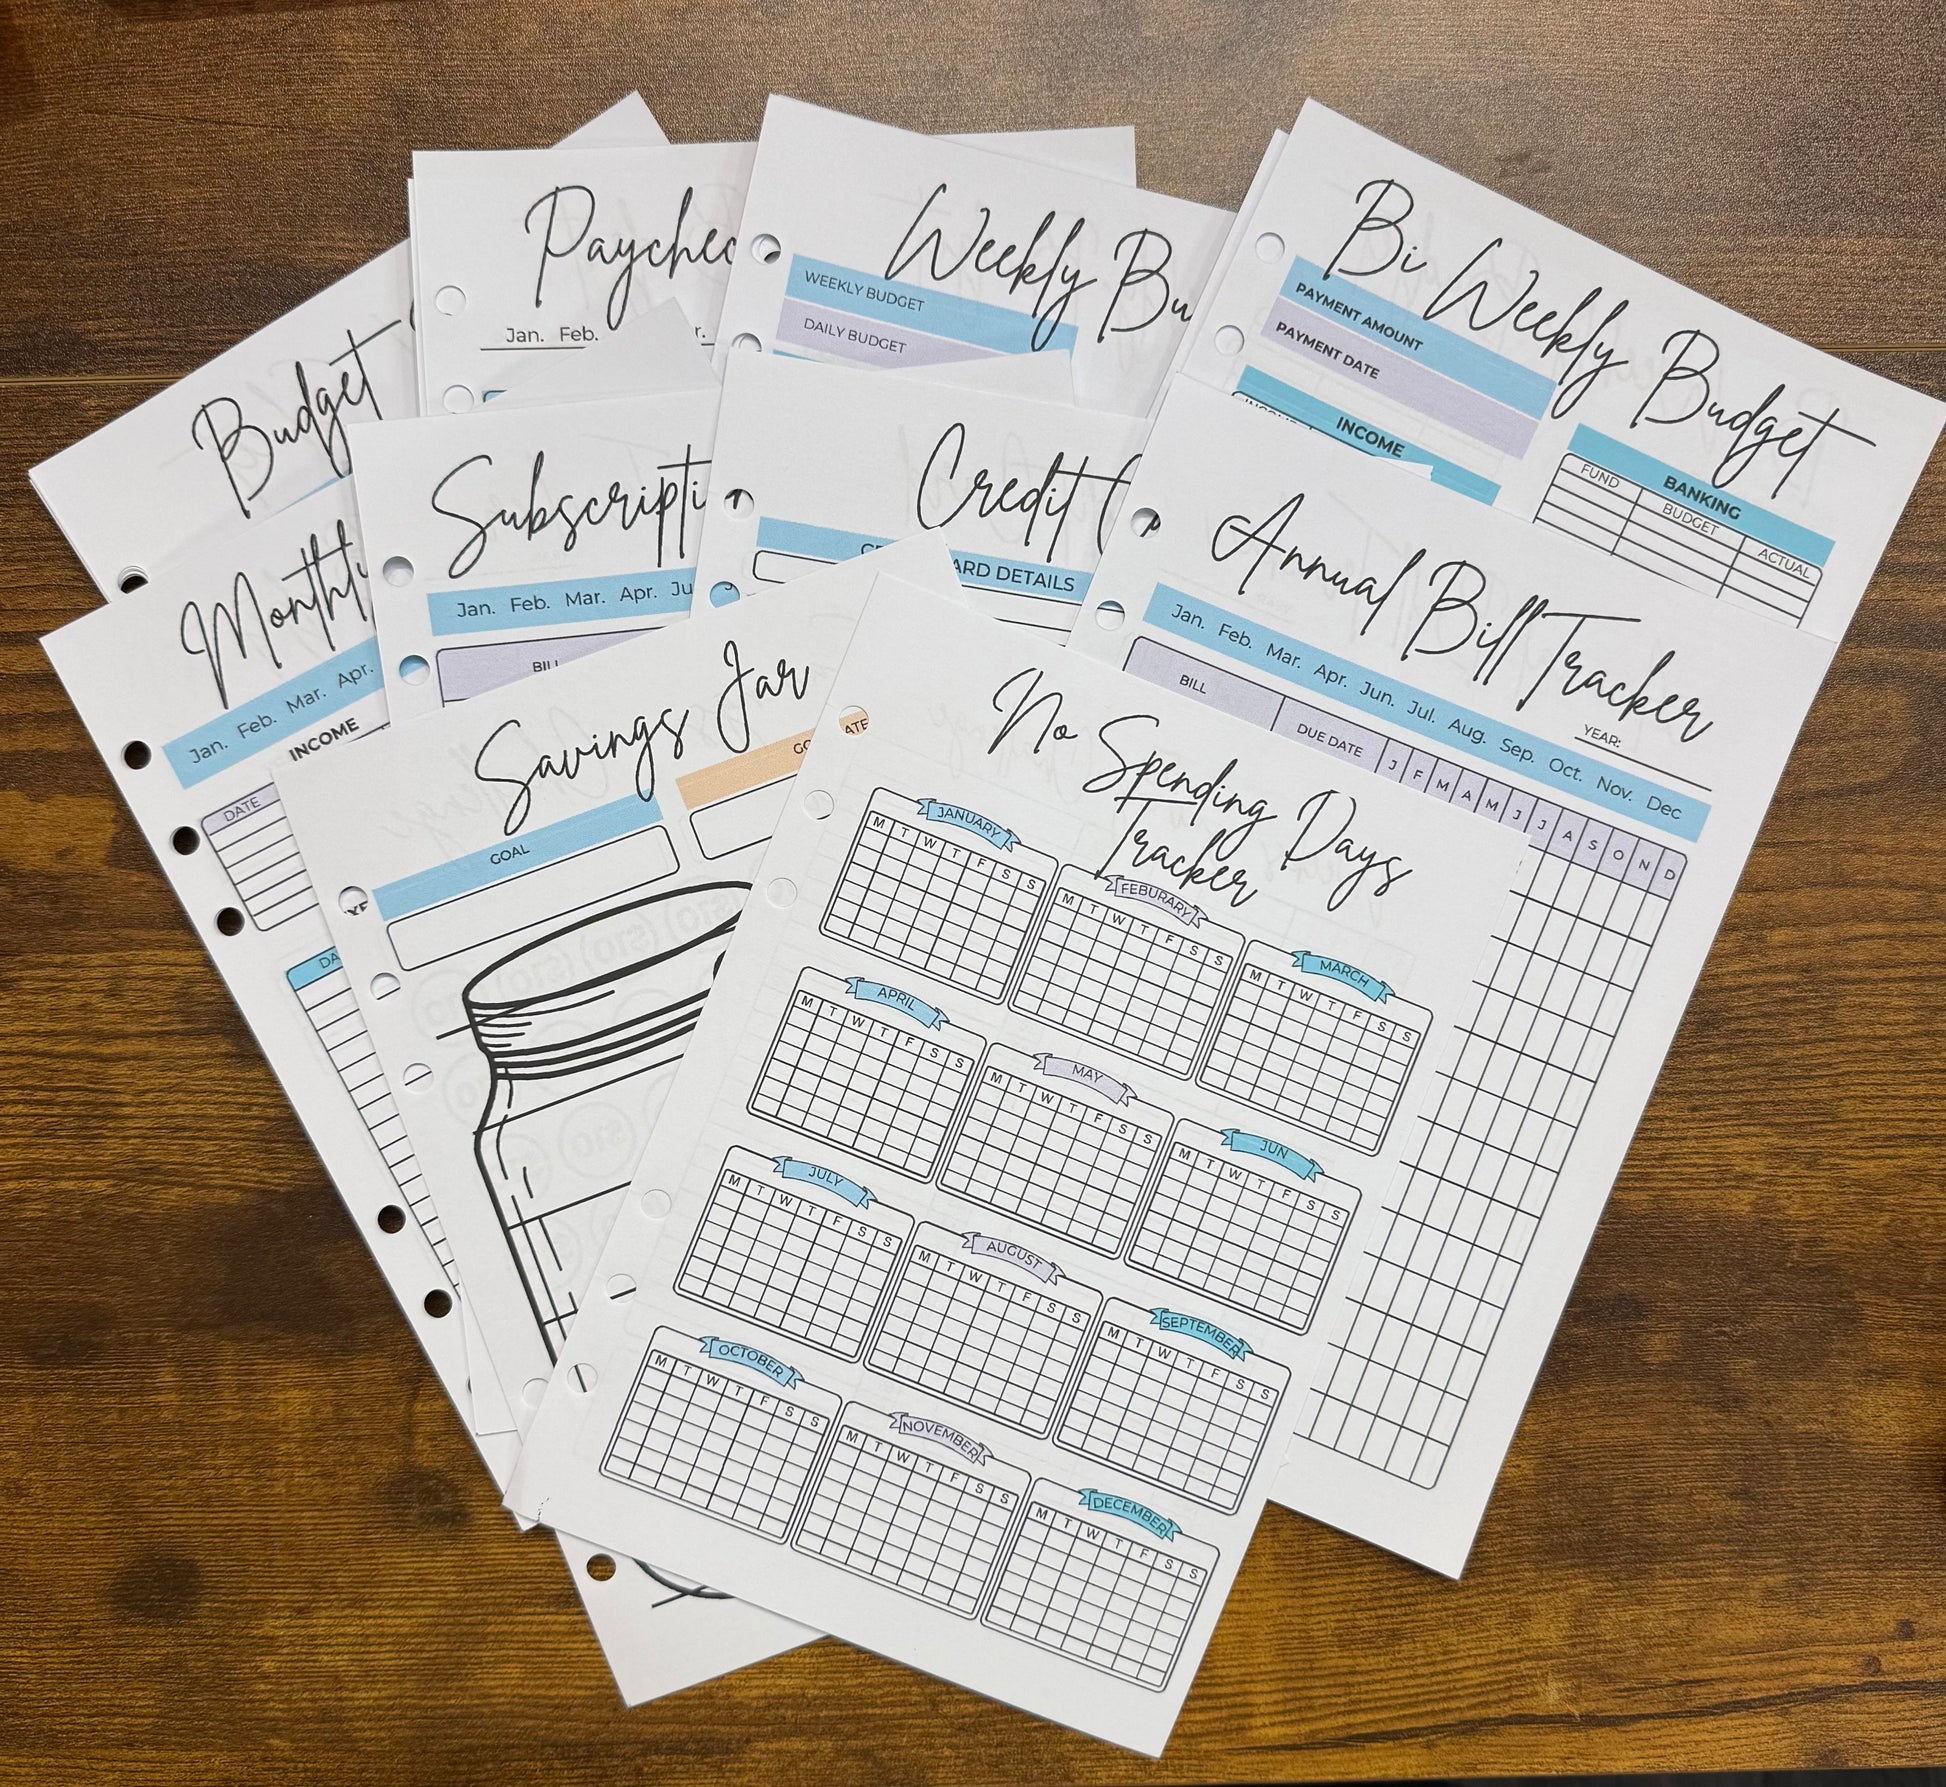 Budget
Paychec
Jan. Feb.
Weekly Bu
WEEKLY BUDGET
DAILY BUDGET
Bi Weekly Budget
PAYMENT AMOUNT
PAYMENT DATE
INCOME
BANKING
FUND BUDGET ACTUAL
Monthl
Jan. Feb. Mar. Apr.
INCOME
DATE
DA
Subscripti
Jan. Feb. Mar. Apr. Ju
BILL
Credit C
ARD DETAILS
Annual Bill Tracker
YEAR:
Jan. Feb. Mar. Apr. Jun. Jul. Aug. Sep. Oct. Nov. Dec
BILL DUE DATE J F M A M J J A S O N D
Savings Jar
GOAL
GO
ATE
No Spending Days
Tracker
JANUARY
M T W T F S S
FEBURARY
M T W T F S S
MARCH
M T W T F S S
APRIL
M T W T F S S
MAY
M T W T F S S
JUN
M T W T F S S
JULY
M T W T F S S
AUGUST
M T W T F S S
SEPTEMBER
M T W T F S S
OCTOBER
M T W T F S S
NOVEMBER
M T W T F S S
DECEMBER
M T W T F S S